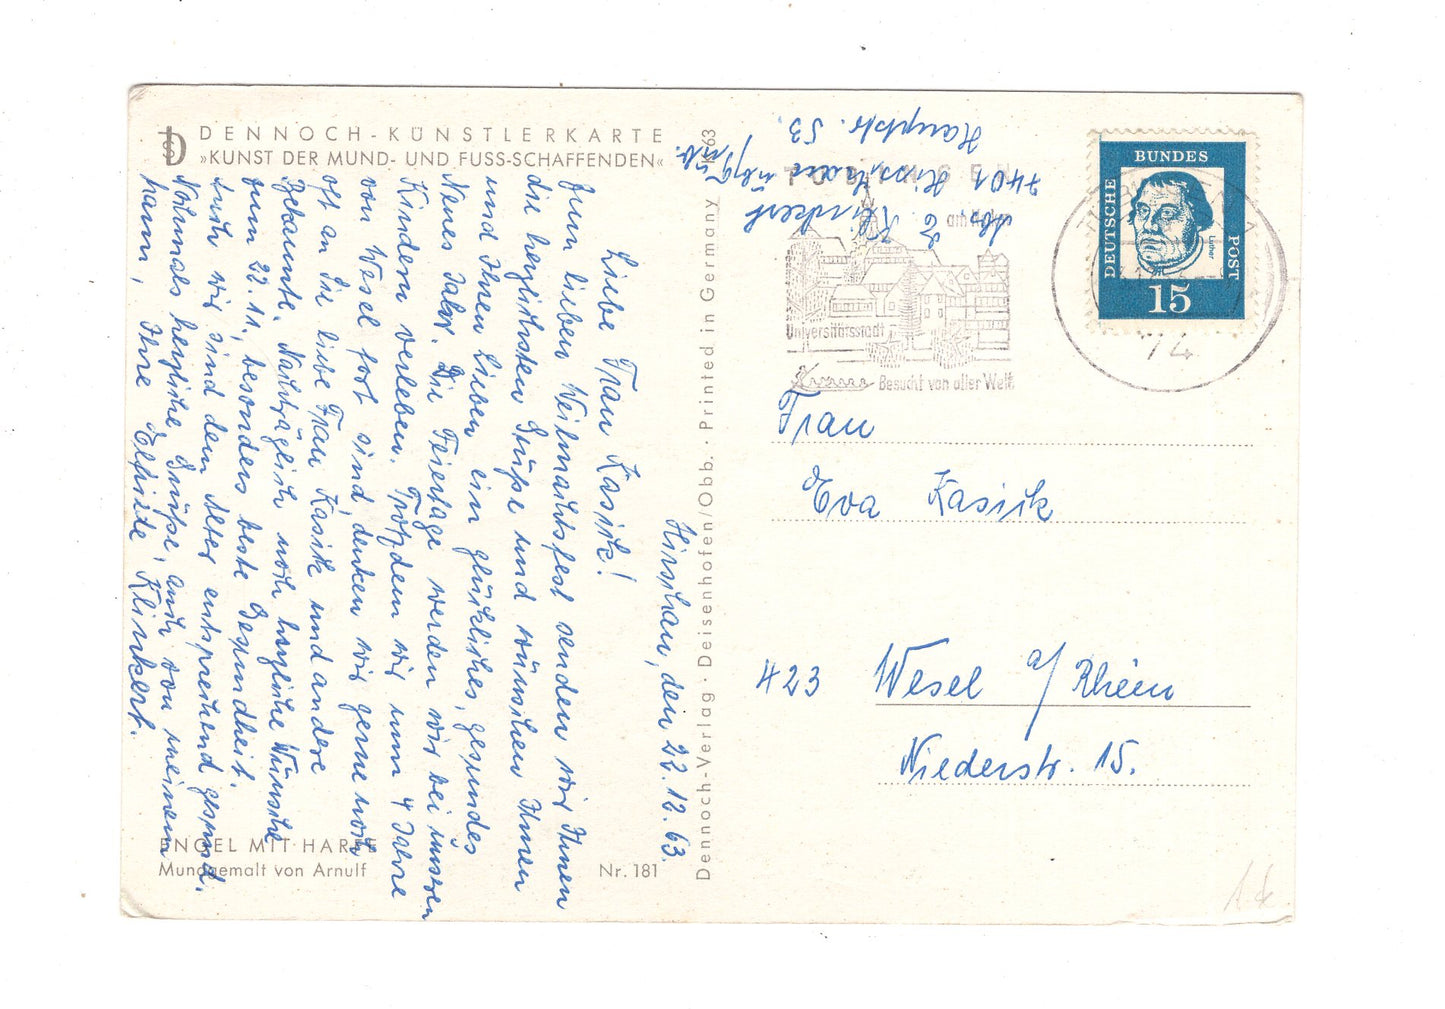 DENNOCH-KÜNSTLERKARTE
»KUNST DER MUND- UND FUSS-SCHAFFENDEN«
K 63
Hirschau, den 22.12.63.
Liebe Frau Kasick!
Zum lieben Weihnachtsfest senden wir Ihnen
die herzlichsten Grüße und wünschen Ihnen
und Ihren Lieben ein glückliches, gesundes
Neues Jahr. Die Feiertage werden wir bei unseren
Kindern verleben. Trotzdem wir nun 4 Jahre
von Wesel fort sind, denken wir gerne noch
oft an Sie liebe Frau Kasick und andere
Bekannte. Nachträglich noch herzliche Wünsche
zum 22.11. besonders beste Gesundheit.
Auch wir sind dem Alter entsprechend gesund.
Nochmals herzliche Grüße, auch von meinem
Mann, Ihre Elfriede Klinkert.
ENGEL MIT HARFE
Mundgemalt von Arnulf
Nr. 181
Dennoch-Verlag · Deisenhofen/Obb. · Printed in Germany
Abs. E. Klinkert
7401 Hirschau üb/Tüb.
Hauptstr. 53.
TÜBINGEN
am Neckar
Universitätsstadt
Besucht von aller Welt
74
DEUTSCHE
BUNDES
POST
Luther
15
Frau
Eva Kasick
423 Wesel a/Rhein
Niederstr. 15.